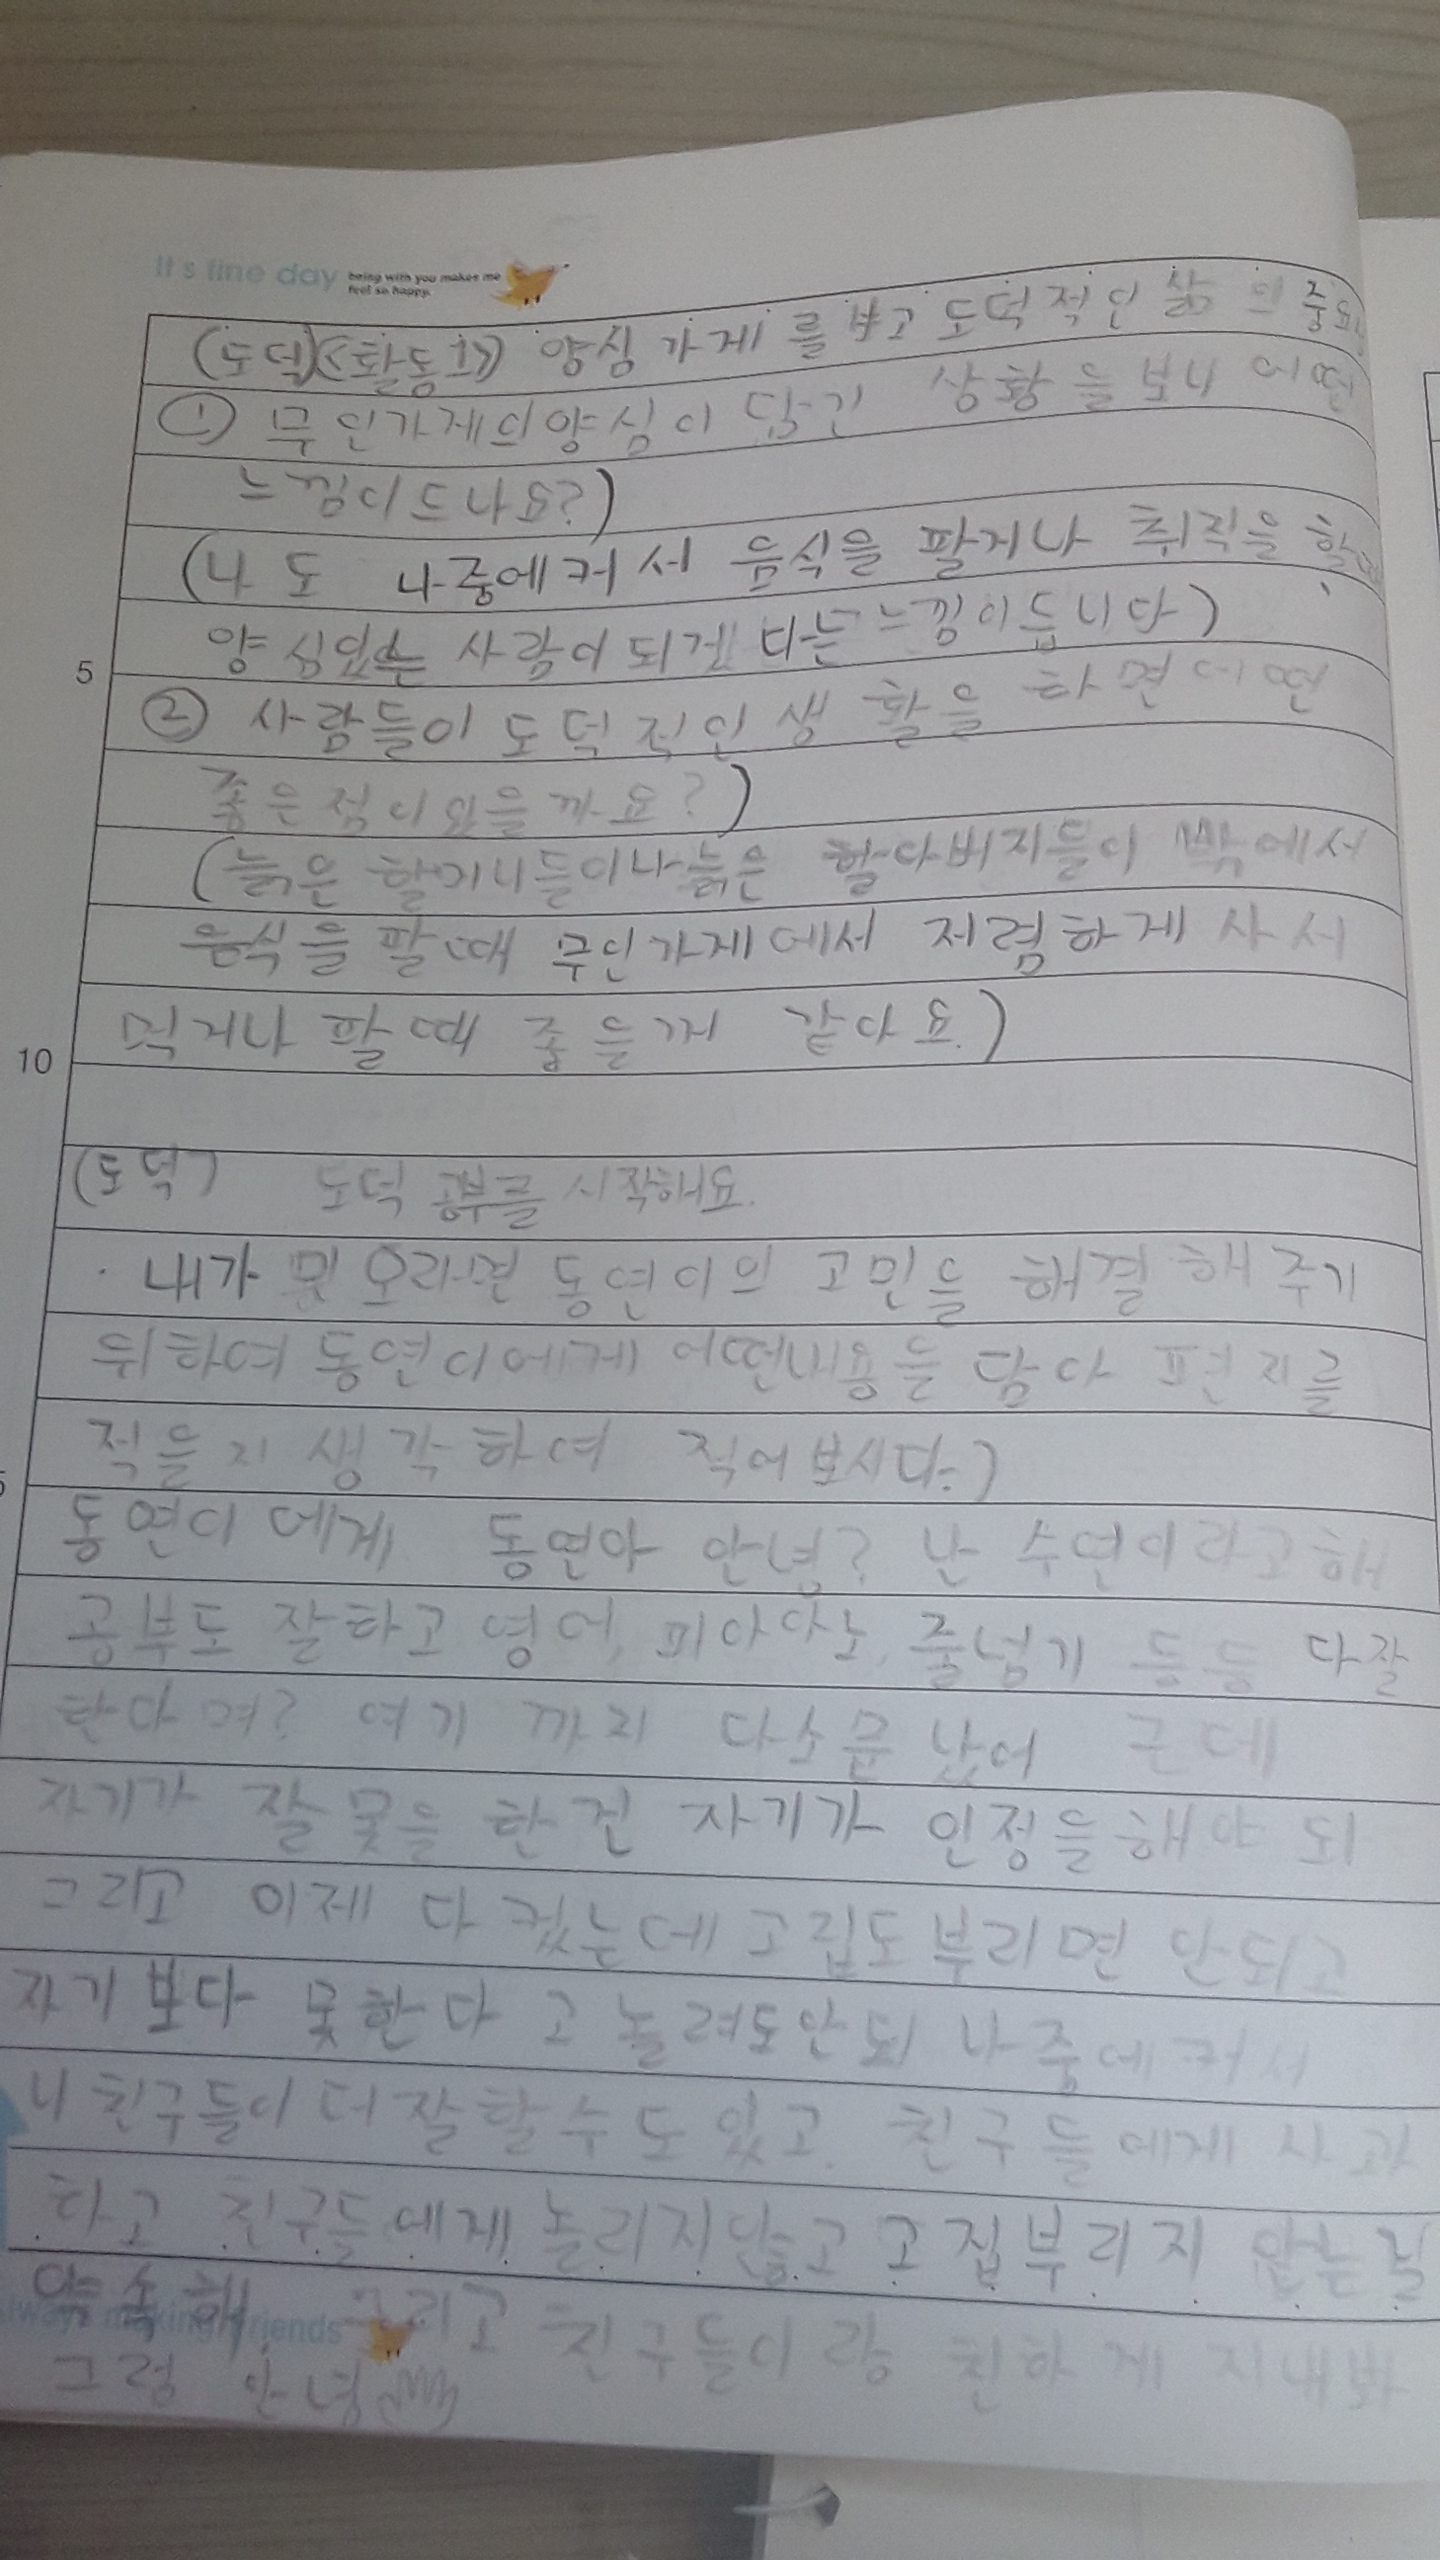 It's fine day being with you makes me
feel so happy.
(도덕)<활동1> 양심 가게를 보고 도덕적인 삶의 중요
① 무인가게의 양심이 담긴 상황을 보니 어떤
느낌이드나요?)
(나도 나중에커서 음식을 팔거나 취직을
양심있는 사람이되겠다는느낌이듭니다)
5
② 사람들이 도덕적인 생활을 하면 어떤
좋은점이있을까요?)
(늙은 할머니들이나늙은 할아버지들이 밖에서
음식을 팔때 무인가게에서 저렴하게 사서
먹거나 팔때 좋을꺼 같아요.)
10
(도덕) 도덕 공부를 시작해요.
· 내가 동연이의 고민을 해결해 주기
위하여 동연이에게 어떤내용을 담아 편지를
적을지 생각하여 적어보시다.)
동연이에게 동연아 안녕? 난 수연이라고해
공부도 잘하고 영어, 피아노, 줄넘기 등등 다잘
한다며? 여기까지 다소문났어 근데
자기가 잘못을 한건 자기가 인정을해야되
그리고 이제 다 컸는데 고집도부리면 안되고
자기보다 못한다고 놀려도안되 나중에커서
니친구들이더잘할수도있고. 친구들에게 사과
하고 친구들에게 놀리지않고 고집부리지 않는
약속해 그리고 친구들이랑 친하게 지내봐
그럼 안녕